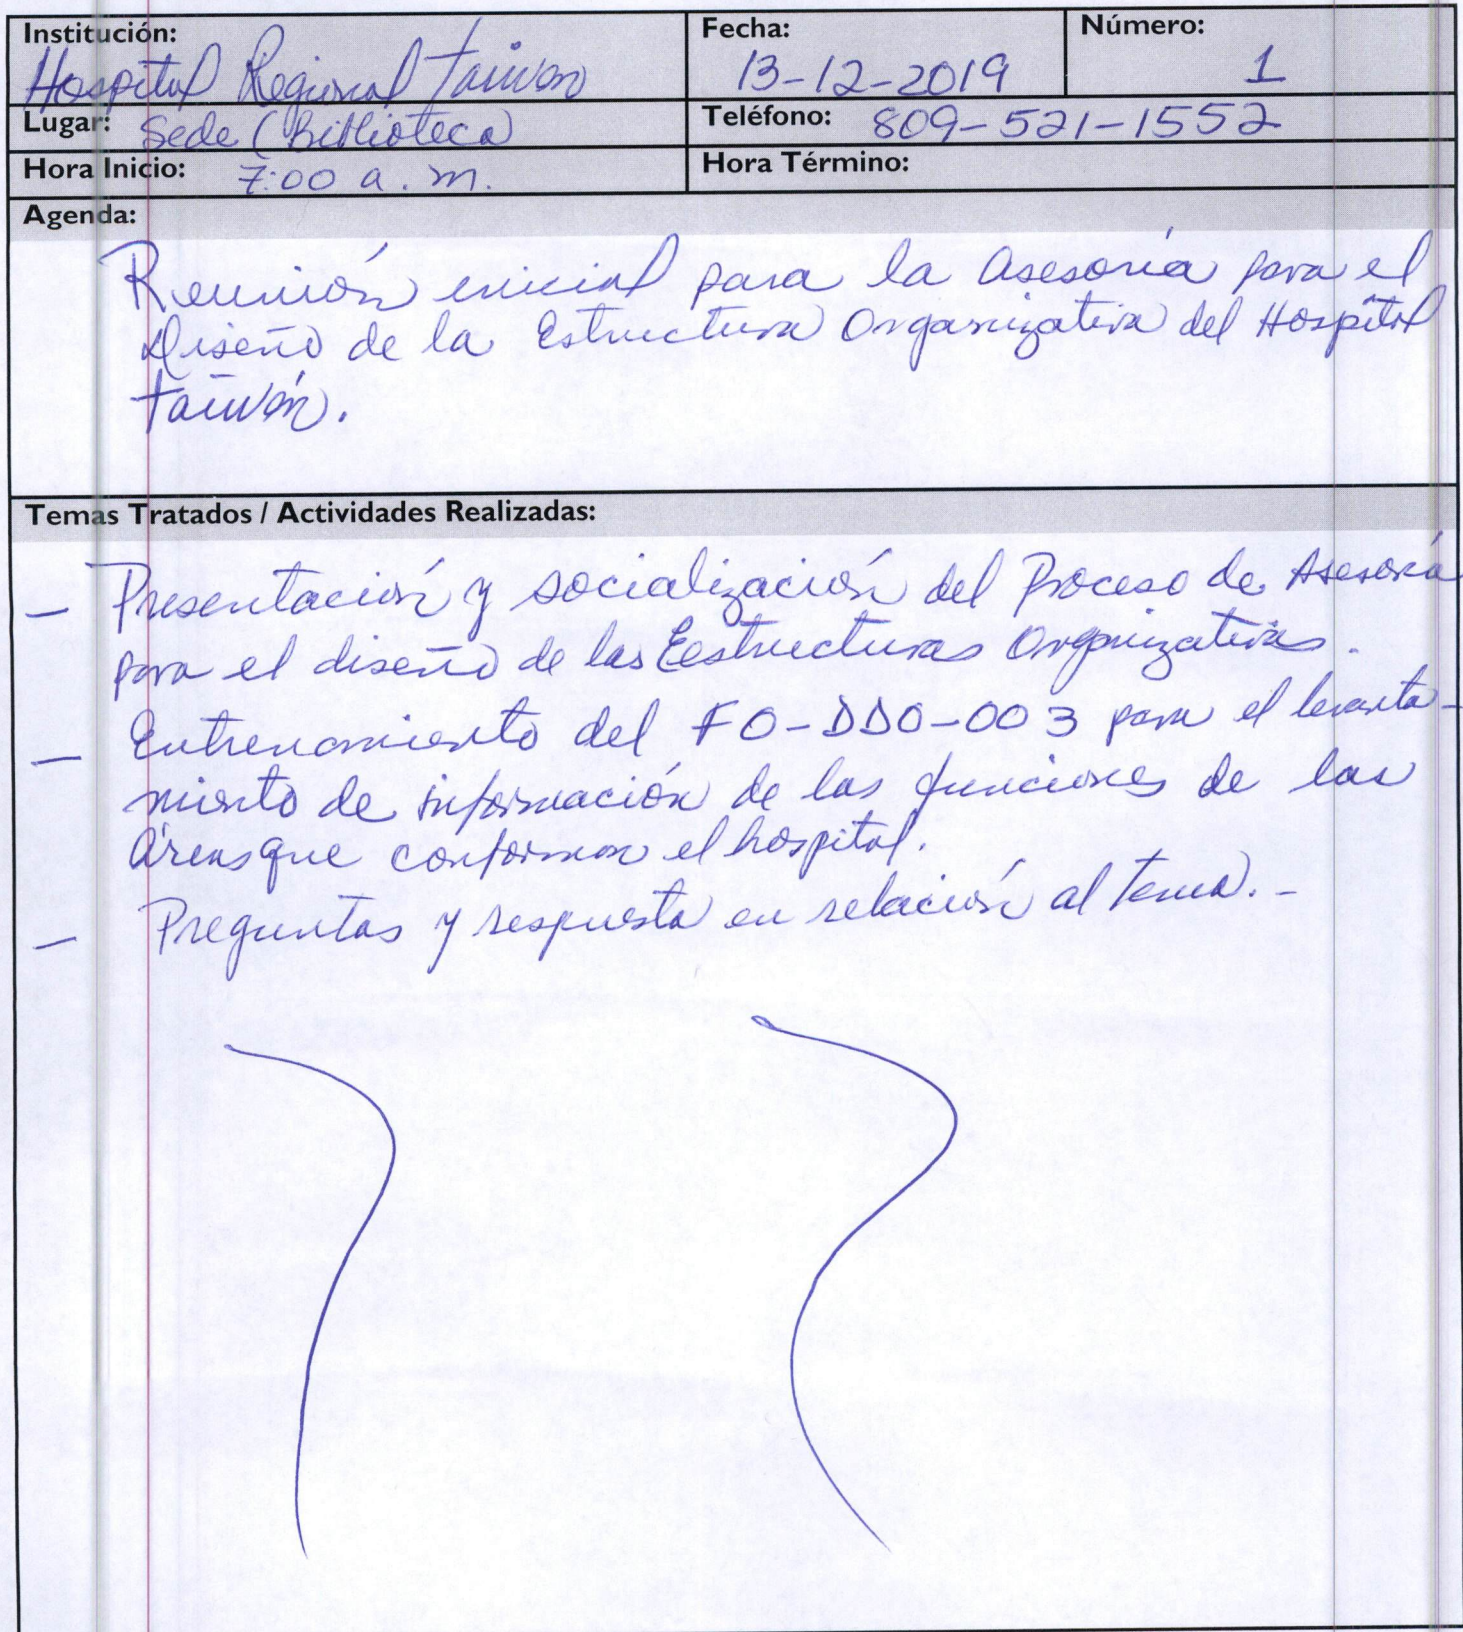 Institución: Hospital Regional Taiwán
Fecha: 13-12-2019
Número: 1
Lugar: Sede (Biblioteca)
Teléfono: 809-521-1552
Hora Inicio: 7:00 a.m.
Hora Término:
Agenda:
Reunión inicial para la Asesoría para el
Diseño de la Estructura Organizativa del Hospital
Taiwán.
Temas Tratados / Actividades Realizadas:
- Presentación y socialización del Proceso de Asesoría
para el diseño de las Eestructuras Organizativas.
- Entrenamiento del FO-DDO-003 para el levanta-
miento de información de las funciones de las
áreas que conforman el hospital.
- Preguntas y respuesta en relación al tema.-